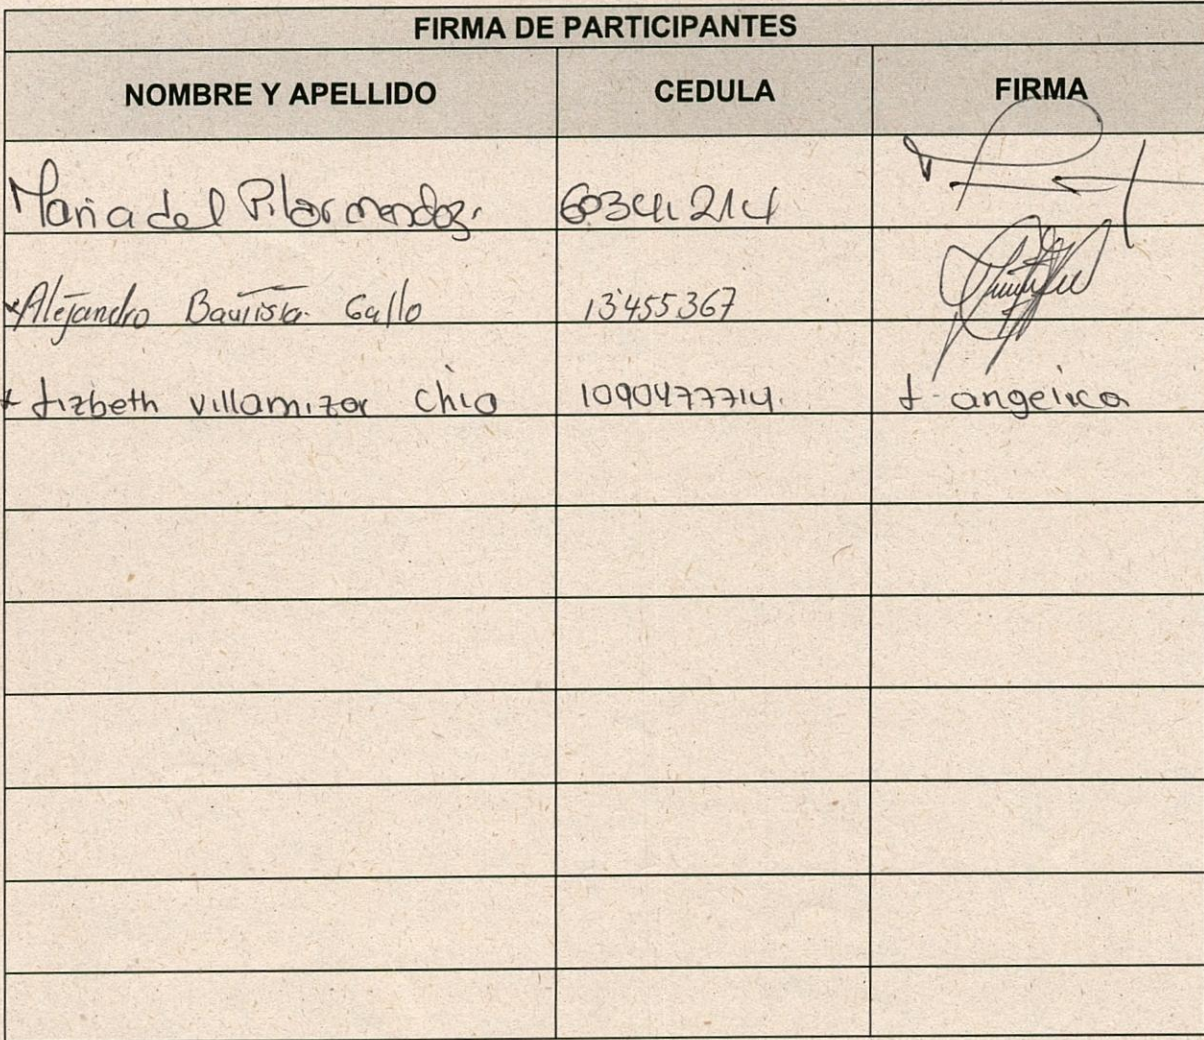 FIRMA DE PARTICIPANTES
NOMBRE Y APELLIDO CEDULA FIRMA
Maria del Pilar mendoza
Alejandro Bautista Gallo 13'455367
Lizbeth villamizar Chio 1090477714. L. angelica